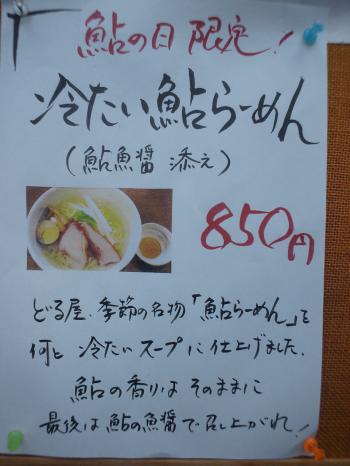 鮎の日限定!
冷たい鮎らーめん
(鮎魚醤 添え)
850円
どる屋、季節の名物「鮎らーめん」を
何と 冷たいスープに仕上げました。
鮎の香りは そのままに
最後は鮎の魚醤で召し上がれ!